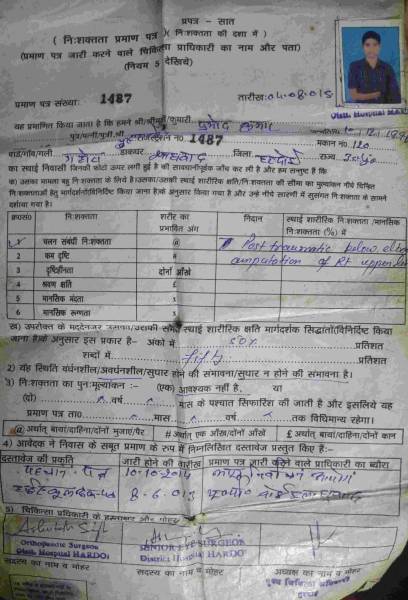 प्रपत्र - सात
( निःशक्तता प्रमाण पत्र )( निःशक्तता की दशा में )
(प्रमाण पत्र जारी करने वाले चिकित्सा प्राधिकारी का नाम और पता)
(नियम 5 देखिये)
Distt. Hospital HARDOI
प्रमाण पत्र संख्याः 1487
तारीखः 04.08.015
यह प्रमाणित किया जाता है कि हमने श्री/श्रीमती/कुमारी प्रमोद कुमार
पुत्र/पत्नी/पुत्री श्री
1487
मकान नं० 120
वार्ड/गाँव/गली
डाकघर
जिला हरदोई राज्य उ०प्र०
का स्थाई निवासी जिनकी फोटो ऊपर लगी हुई है की सावधानीपूर्वक जाँच कर ली है और हम सन्तुष्ट हैं कि
क) उसका मामला बहु निःशक्तता के लिये है।उसका/उसकी स्थाई शारीरिक क्षति/निःशक्तता की सीमा का मुल्यांकन नीचे चिन्हित
निःशक्तताओं हेतु मार्गदर्शनों(विनिर्दिष्ट किया जाना है)के अनुसार किया गया है और उन्हे नीचे सारणी में सुसंगत निःशक्तता के सामने
दर्शाया गया है।
क्र०सं० निःशक्तता शरीर का प्रभावित अंग निदान स्थाई शारीरिक निःशक्तता /मानसिक निःशक्तता (% में)
1 चलन संबंधी निःशक्तता @ Post traumatic below elbow
amputation of Rt upper limb
2 कम दृष्टि #
3 दृष्टिहीनता दोनों आँखें
4 श्रवण क्षति £
5 मानसिक मंदता x
6 मानसिक रूग्णता x
ख) उपरोक्त के मद्देनजर उसका/उसकी समग्र स्थाई शारीरिक क्षति मार्गदर्शक सिद्धांतों(विनिर्दिष्ट किया
जाना है)के अनुसार इस प्रकार है- अंकों में 50% प्रतिशत
शब्दों में fifty प्रतिशत
2) यह स्थिति वर्धनशील/अवर्धनशील/सुधार होने की संभावना/सुधार न होने की संभावना है।
3) निःशक्तता का पुनःमूल्यांकन :- (एक) आवश्यक नहीं है, या
(दो) वर्ष मास के पश्चात सिफारिश की जाती है और इसलिये यह
प्रमाण पत्र ता० मास वर्ष तक विधिमान्य रहेगा।
@ अर्थात् बायां/दाहिना/दोनों मुजायें/पैर # अर्थात् एक आँख/दोनों आँखें £ अर्थात् बायां/दाहिना/दोनों कान
4) आवेदक ने निवास के सबूत प्रमाण के रूप में निम्नलिखित दस्तावेज प्रस्तुत किये हैं:-
दस्तावेज की प्रकृति जारी होने की तारीख प्रमाण पत्र जारी करने वाले प्राधिकारी का ब्यौरा
पहचान-पत्र 10-10-2014
हाईस्कूल अंक-पत्र 8-6-013
5) चिकित्सा प्राधिकारी के हस्ताक्षर और मोहर
Orthopaedic Surgeon
Distt. Hospital HARDOI
SENIOR EYE SURGEON
District Hospital HARDOI
सदस्य का नाम व मोहर
सदस्य का नाम व मोहर
अध्यक्ष का नाम व मोहर
मुख्य चिकित्सा अधिकारी
हरदोई